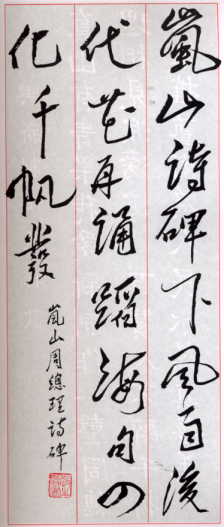 嵐山詩碑下風育後
代花再誦蹈海句四
化千帆發
嵐山周總理詩碑